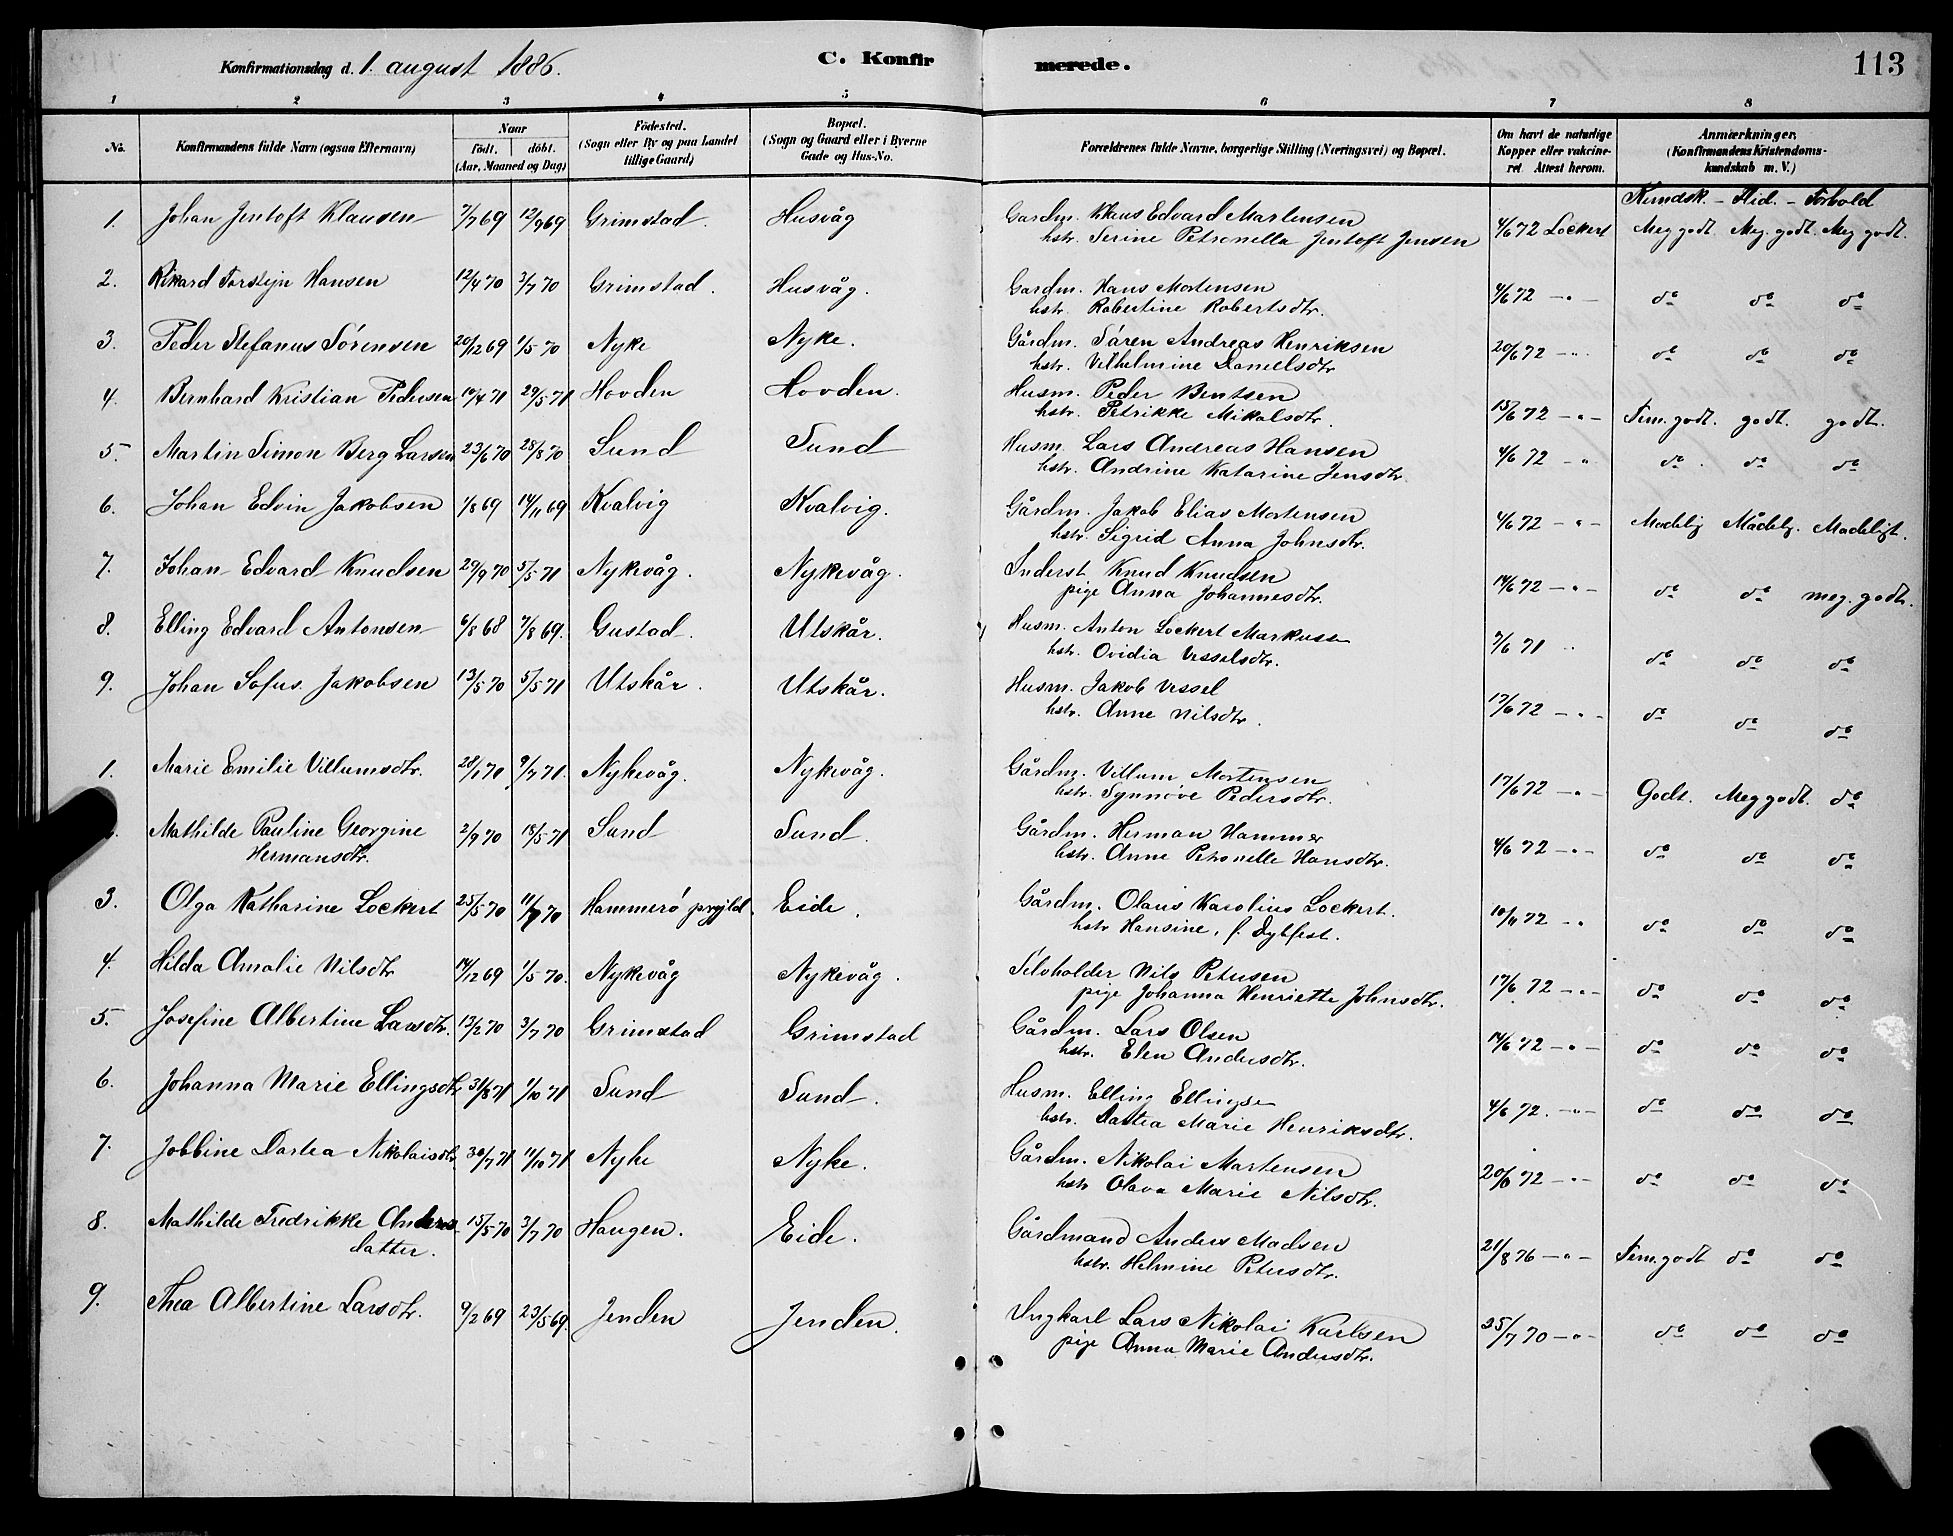 Konfirmationsdag d. 1. august 1886. C. Konfirmerede. 113
1 2 3 4 5 6 7 8
No. Konfirmandens fulde Navn (ogsaa Efternavn) Naar födt. döbt. (Aar, Maaned og Dag) Födested. (Sogn eller By og paa Landet tillige Gaard) Bopæl. (Sogn og Gaard eller i Byerne Gade og Hus-No. Forældrenes fulde Navne, borgerlige Stilling (Næringsvei) og Bopæl. Om havt de naturlige Kopper eller vakcineret. Attest herom. Anmærkninger. (Konfirmandens Kristendomskundskab m. V.)
Kundsk. – Flid. – Forhold
1. Johan Jentoft Klausen 7/7 69 12/9 69 Grimstad. Husvåg Gardm. Klaus Edvard Martensen 4/6 72 Lockert Meg godt. Meg. godt. Meg godt.
hstr. Serine Petronella Jentoft Jensen
2. Rikard Torstejn Hansen 12/4 70 3/7 70 Grimstad. Husvåg. Gardm. Hans Mortensen 4/6 72 – " – do do do
hstr. Robertine Robertsdtr.
3. Peder Stefanus Sörensen 20/12 69 1/5 70 Nyke Nyke. Gårdm. Sören Andreas Henriksen 20/6 72 – " – do do do
hstr. Vilhelmine Danielsdtr
4. Bernhard Kristian Pedersen 10/4 71 29/5 71 Hovden Hovden. Husm. Peder Bentsen 15/6 72 – " – Tem. godt. godt. godt.
hstr. Petrikke Mikalsdtr.
5. Martin Simon Berg Larsen 23/6 70 28/8 70 Sund Sund Husm. Lars Andreas Hansen 4/6 72 – " do do do
hstr. Andrine Katarine Jensdtr.
6. Johan Edvin Jakobsen 1/8 69 14/11 69 Kvalvig Kvalvig. Gårdm. Jakob Elias Mortensen 4/6 72 – " – Madelig Mådelig. Madeligt.
hstr. Sigrid Anna Johnsdtr.
7. Johan Edvard Knudsen 29/9 70 5/5 71 Nykevåg. Nykevåg. Inderst Knud Knudsen 14/6 72 – " – do do meg. godt.
pige Anna Johannesdtr.
8. Elling Edvard Antonsen 6/8 68 7/8 69. Gustad. Utskår. Husm. Anton Lockert Markussen 7/6 71 " do do do
hstr. Ovidia Vesselsdtr.
9. Johan Sofus Jakobsen 13/5 70 5/5 71 Utskår. Utskår. Husm. Jakob Vessel 17/6 72 – " – do do do
hstr. Anne Nilsdtr.
1. Marie Emilie Villumsdtr. 28/1 70 9/7 71. Nykevåg. Nykevåg. Gårdm. Villum Mortensen 17/6 72 – " – Godt. Meg godt. do
hstr. Synnöve Pedersdtr.
Mathilde Pauline Georgine 2/9 70 18/5 71 Sund Sund. Gårdm. Herman Hammer 4/6 72 – " – do do do
Hermansdtr. hstr. Anne Petronelle Hansdtr.
3. Olga Katharine Lockert 25/5 70 11/7 70 Hammerö prgjld. Eide. Gårdm. Olaus Karolius Lockert. 10/11 72 – " do do do
hstr Hansine, f. Dybfest.
4. Hilda Amalie Nilsdtr 14/12 69 1/5 70. Nykevåg Nykevåg. Selvholder Nils Petersen 17/6 72 – " – do do do
pige Johanna Henriette Johnsdtr.
5. Josefine Albertine Larsdtr. 13/2 70 3/7 70 Grimstad Grimstad Gårdm. Lars Olsen 14/6 72 – " – do do do
hstr. Elen Andersdtr.
6. Johanna Marie Ellingsdtr 31/8 71 1/10 71 Sund Sund. Husm. Elling Ellingsen 4/6 72. – " – do do do
hstr. Dartea Marie Henriksdtr.
7. Jobbine Dartea Nikolaisdtr 30/7 71 11/10 71 Nyke Nyke. Gårdm. Nikolai Martensen 20/6 72 – " – do do do
hstr Olava Marie Nilsdtr.
8. Mathilde Fredrikke Anders- 15/5 70 3/7 70 Haugen. Eide. Gårdmand Anders Madsen 21/8 76 – " – Tem. godt do do
datter. hstr. Helmine Petersdtr.
9. Thea Albertine Larsdtr. 9/2 69 23/5 69. Jenden Jenden. Ungkarl Lars Nikolai Karlsen 25/7 70 – " – do do do
pige Anna Marie Andersdtr.